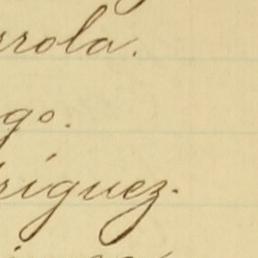 rrola.
go.
ríguez.